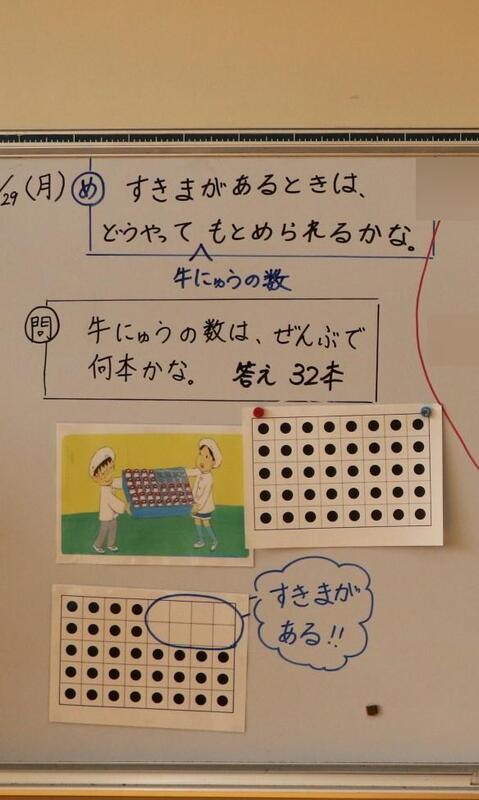 /29 (月) め すきまがあるときは、
どうやって もとめられるかな。
牛にゅうの数
問 牛にゅうの数は、ぜんぶで
何本かな。 答え 32本
すきまが
ある!!